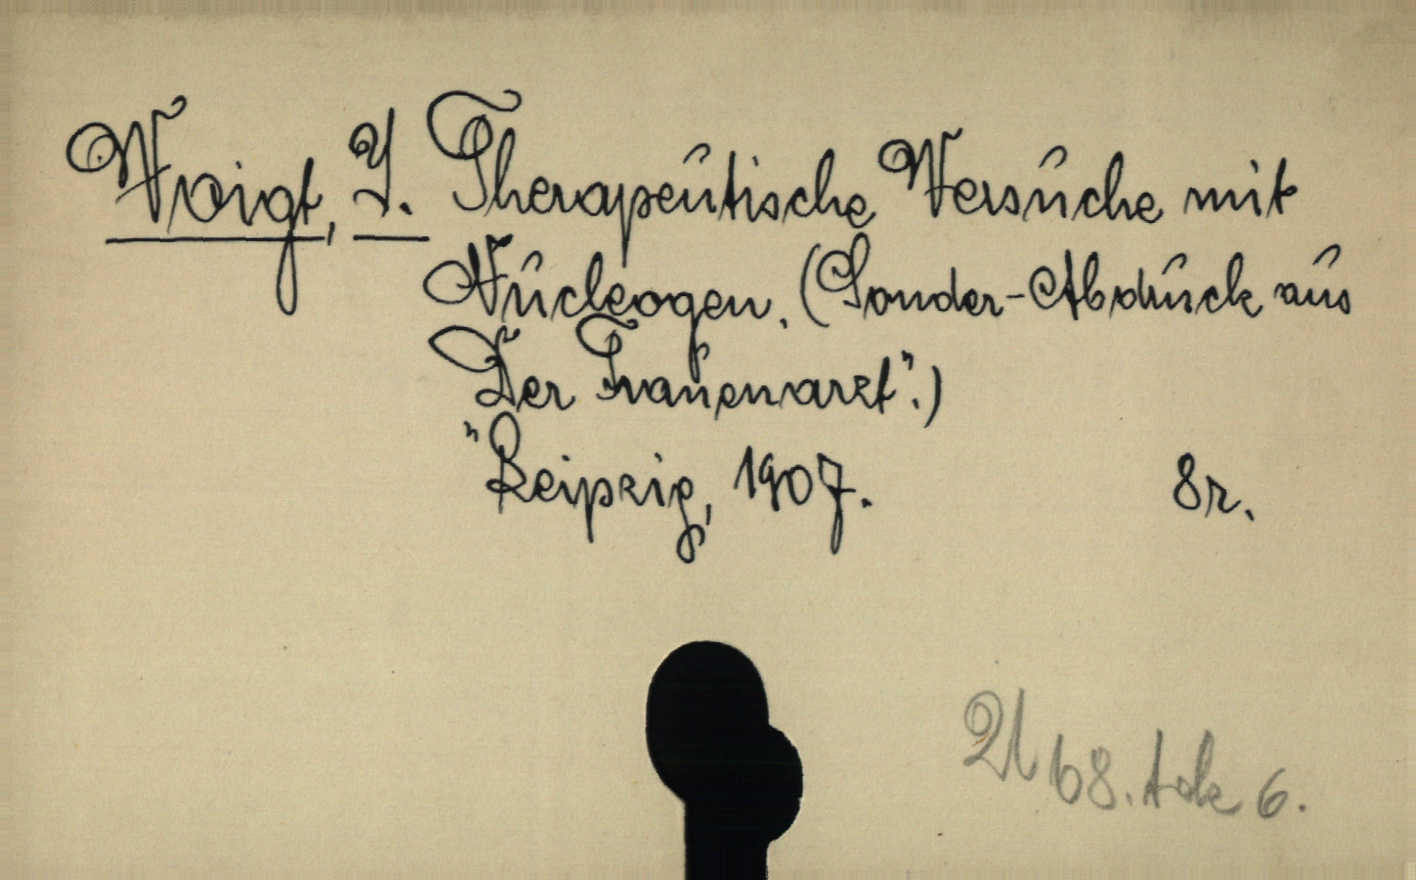 Voigt, J. Therapeutische Versuche mit
Nucleogen. (Sonder-Abdruck aus
"Der Frauenarzt".)
Leipzig, 1907. 8r.
68. tok 6.